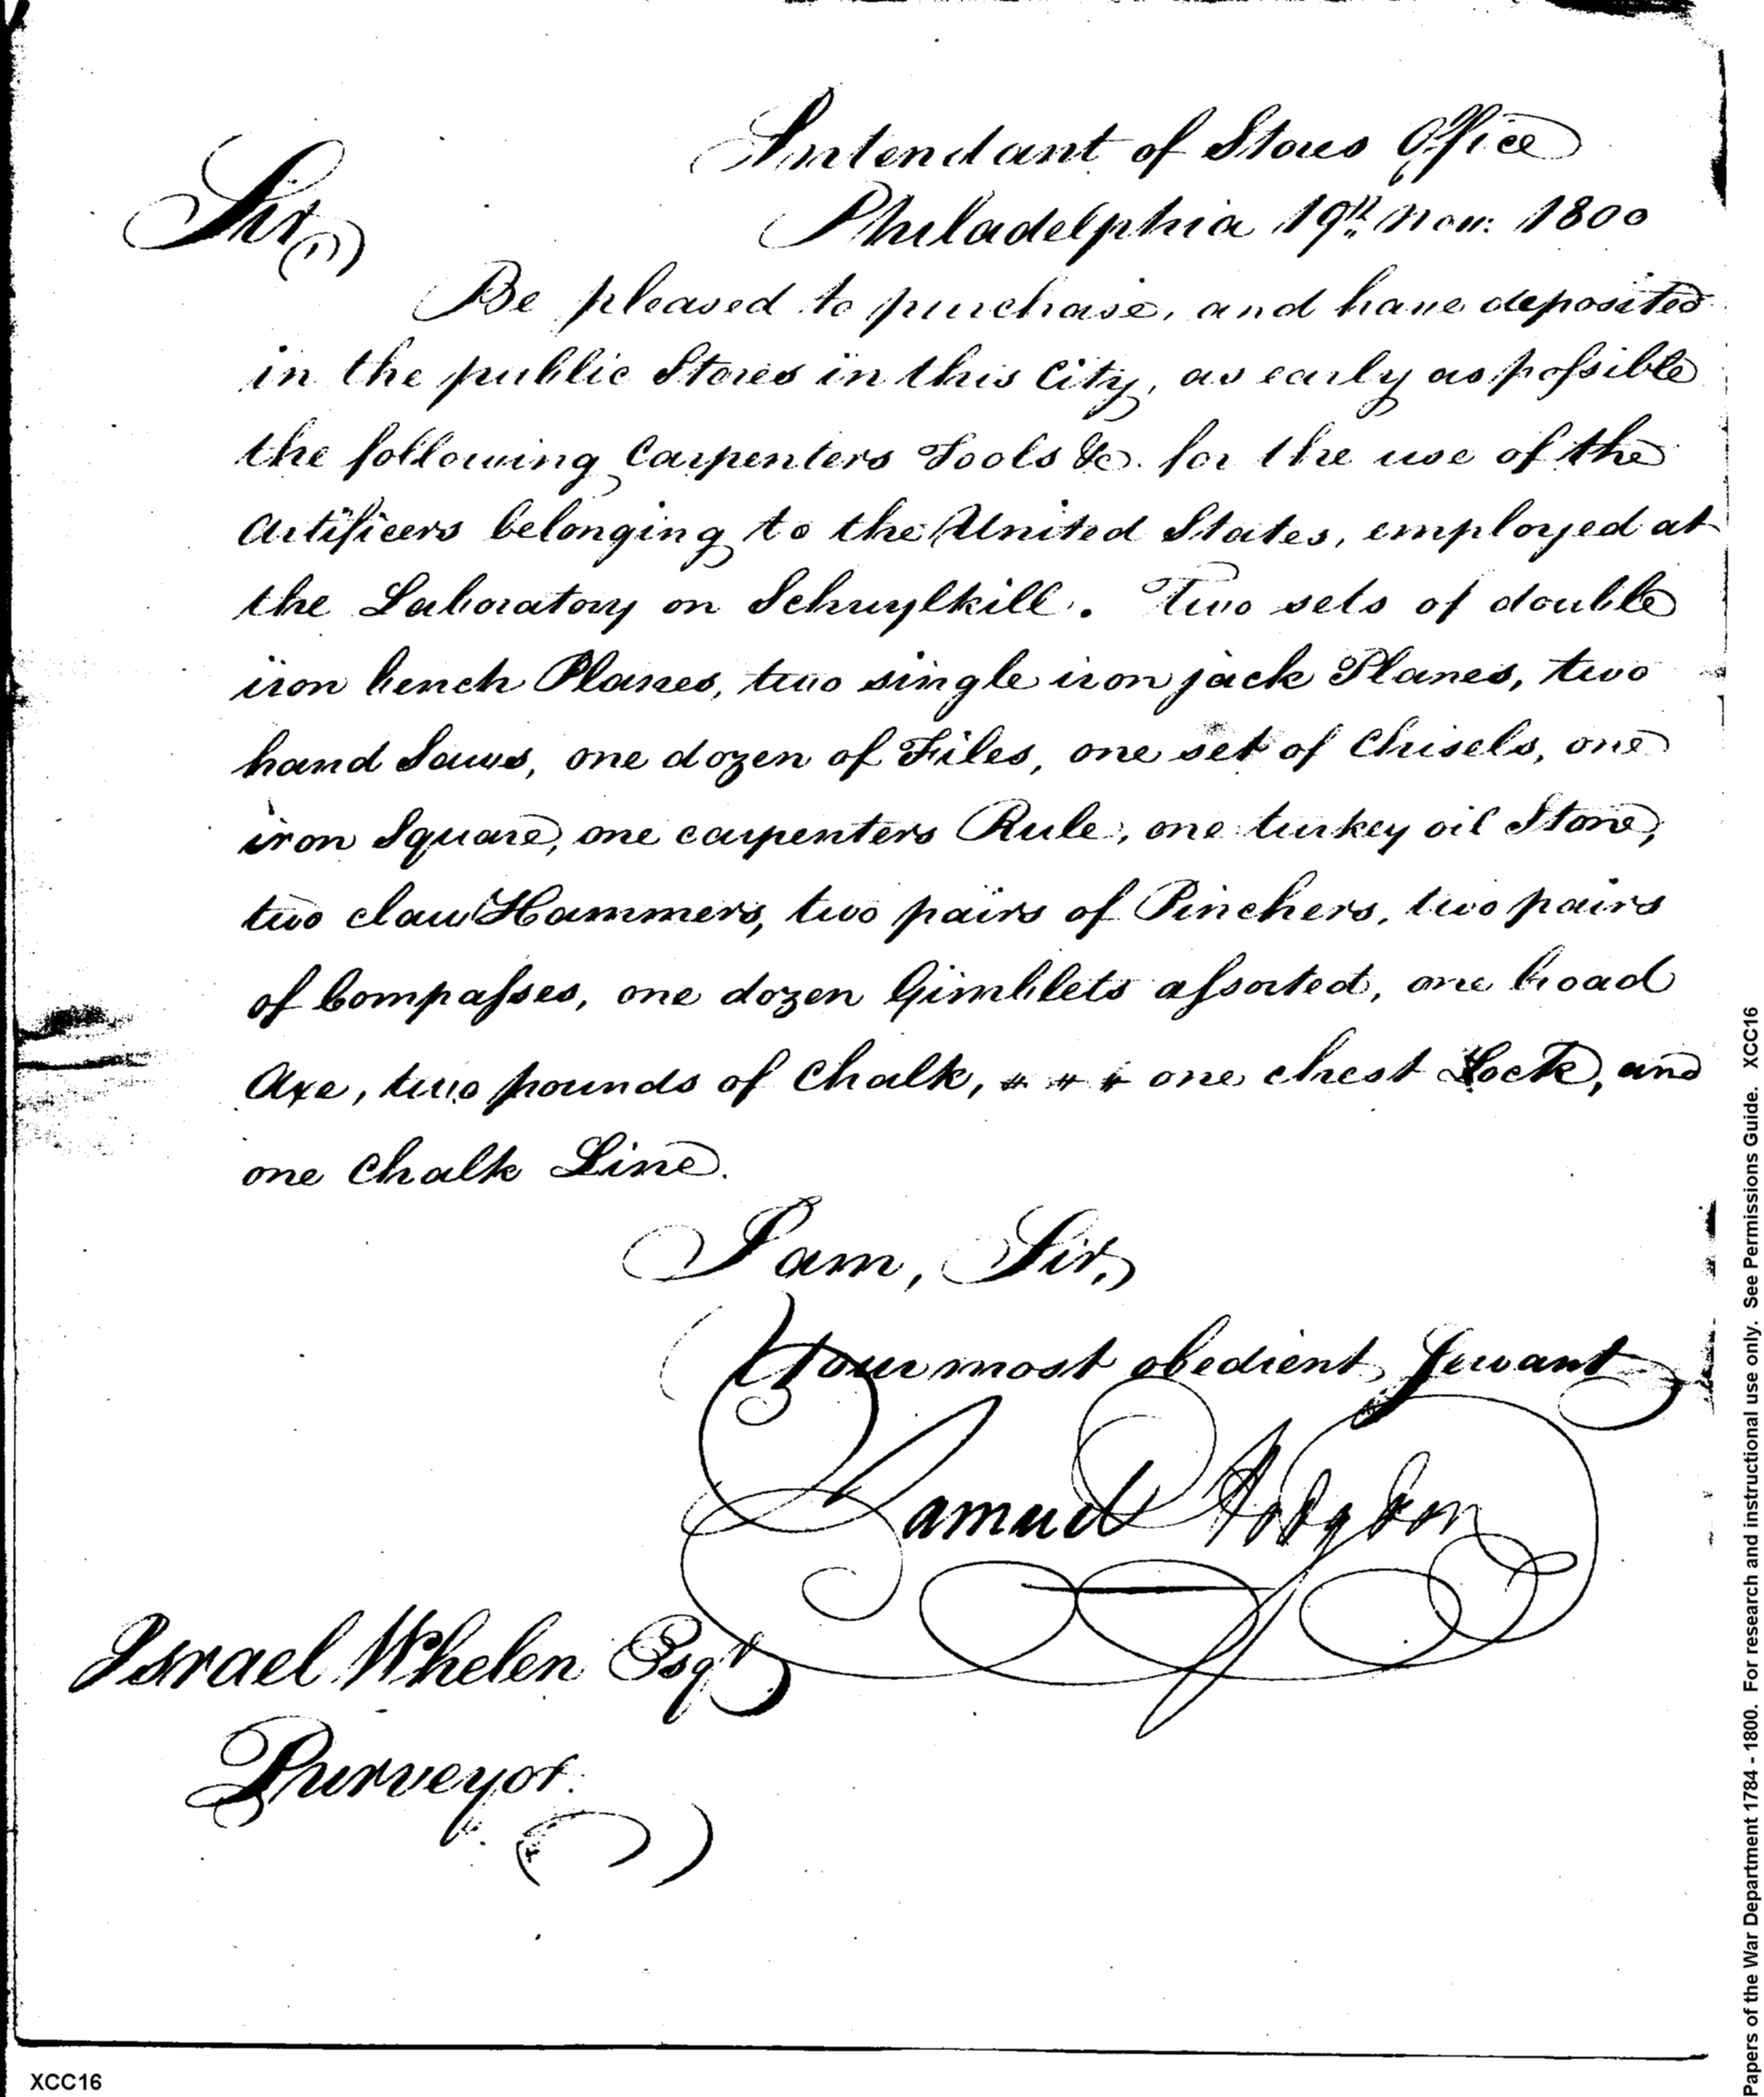 Intendant of Stores Office
Sir,
Philadelphia 19th Nov: 1800
Be pleased to purchase, and have deposited
in the public Stores in this City, as early as possible
the following Carpenters Tools &c. for the use of the
Artificers belonging to the United States, employed at
the Laboratory on Schuylkill. Two sets of double
iron bench Planes, two single iron jack Planes, two
hand Saws, one dozen of Files, one set of Chisels, one
iron Square, one carpenters Rule, one turkey oil Stone,
two claw Hammers, two pairs of Pinchers, two pairs
of Compasses, one dozen Gimblets assorted, one broad
Axe, two pounds of Chalk, # # # one chest Lock, and
one Chalk Line.
I am, Sir,
Your most obedient Servant
Samuel Hodgdon
Israel Whelen Esqr
Purveyor.
XCC16
Papers of the War Department 1784 - 1800. For research and instructional use only. See Permissions Guide. XCC16